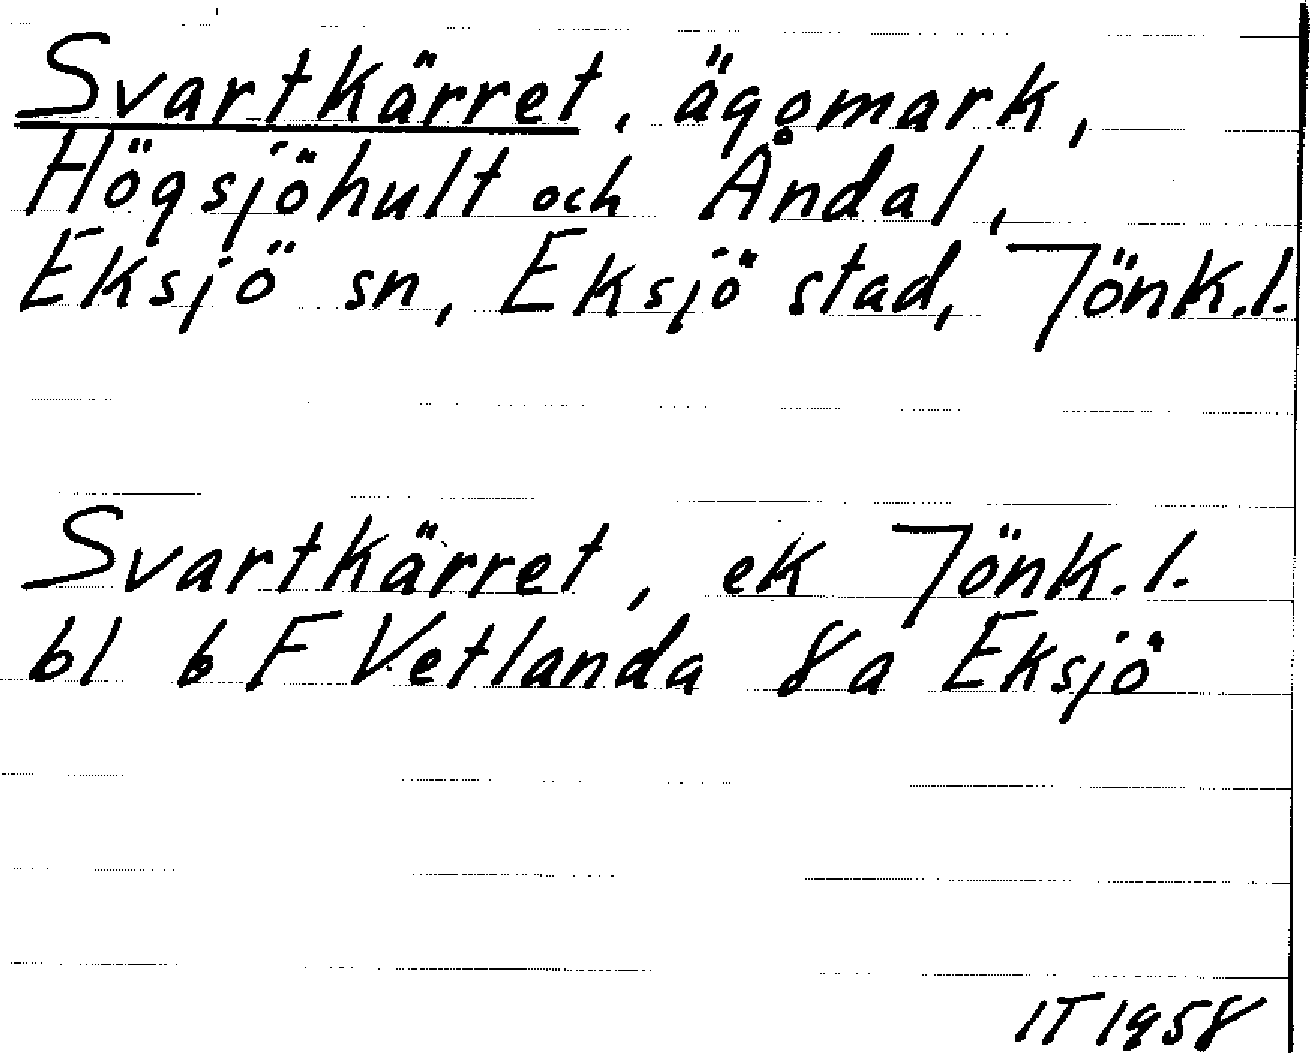 Svartkärret, ägomark,
Högsjöhult och Åndal,
Eksjö sn, Eksjö stad, Jönk.l.
Svartkärret, ek Jönk.l.
bl 6 F Vetlanda 8a Eksjö
IT 1958